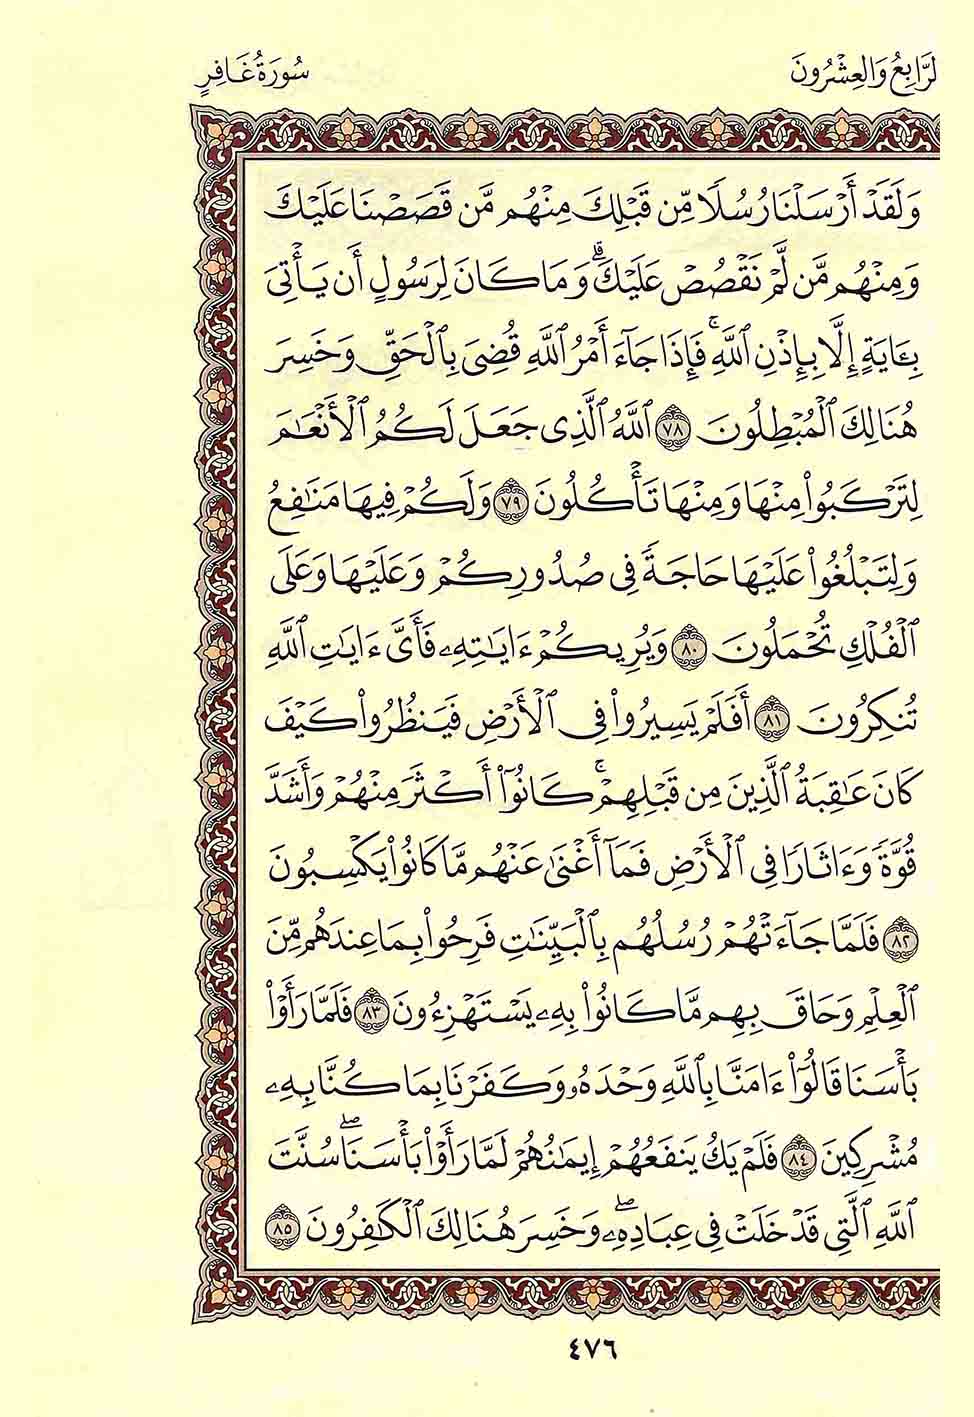 لرَّابِعُ وَالعِشْرُونَ
سُورَةُ غَافِرٍ
وَلَقَدْ أَرْسَلْنَا رُسُلًا مِّن قَبْلِكَ مِنْهُم مَّن قَصَصْنَا عَلَيْكَ
وَمِنْهُم مَّن لَّمْ نَقْصُصْ عَلَيْكَۗ وَمَا كَانَ لِرَسُولٍ أَن يَأْتِىَ
بِـَٔايَةٍ إِلَّا بِإِذْنِ ٱللَّهِۚ فَإِذَا جَآءَ أَمْرُ ٱللَّهِ قُضِىَ بِٱلْحَقِّ وَخَسِرَ
هُنَالِكَ ٱلْمُبْطِلُونَ ٧٨ ٱللَّهُ ٱلَّذِى جَعَلَ لَكُمُ ٱلْأَنْعَـٰمَ
لِتَرْكَبُوا۟ مِنْهَا وَمِنْهَا تَأْكُلُونَ ٧٩ وَلَكُمْ فِيهَا مَنَـٰفِعُ
وَلِتَبْلُغُوا۟ عَلَيْهَا حَاجَةً فِى صُدُورِكُمْ وَعَلَيْهَا وَعَلَى
ٱلْفُلْكِ تُحْمَلُونَ ٨٠ وَيُرِيكُمْ ءَايَـٰتِهِۦ فَأَىَّ ءَايَـٰتِ ٱللَّهِ
تُنكِرُونَ ٨١ أَفَلَمْ يَسِيرُوا۟ فِى ٱلْأَرْضِ فَيَنظُرُوا۟ كَيْفَ
كَانَ عَـٰقِبَةُ ٱلَّذِينَ مِن قَبْلِهِمْۚ كَانُوٓا۟ أَكْثَرَ مِنْهُمْ وَأَشَدَّ
قُوَّةً وَءَاثَارًا فِى ٱلْأَرْضِ فَمَآ أَغْنَىٰ عَنْهُم مَّا كَانُوا۟ يَكْسِبُونَ
٨٢ فَلَمَّا جَآءَتْهُمْ رُسُلُهُم بِٱلْبَيِّنَـٰتِ فَرِحُوا۟ بِمَا عِندَهُم مِّنَ
ٱلْعِلْمِ وَحَاقَ بِهِم مَّا كَانُوا۟ بِهِۦ يَسْتَهْزِءُونَ ٨٣ فَلَمَّا رَأَوْا۟
بَأْسَنَا قَالُوٓا۟ ءَامَنَّا بِٱللَّهِ وَحْدَهُۥ وَكَفَرْنَا بِمَا كُنَّا بِهِۦ
مُشْرِكِينَ ٨٤ فَلَمْ يَكُ يَنفَعُهُمْ إِيمَـٰنُهُمْ لَمَّا رَأَوْا۟ بَأْسَنَاۖ سُنَّتَ
ٱللَّهِ ٱلَّتِى قَدْ خَلَتْ فِى عِبَادِهِۦۖ وَخَسِرَ هُنَالِكَ ٱلْكَـٰفِرُونَ ٨٥
٤٧٦